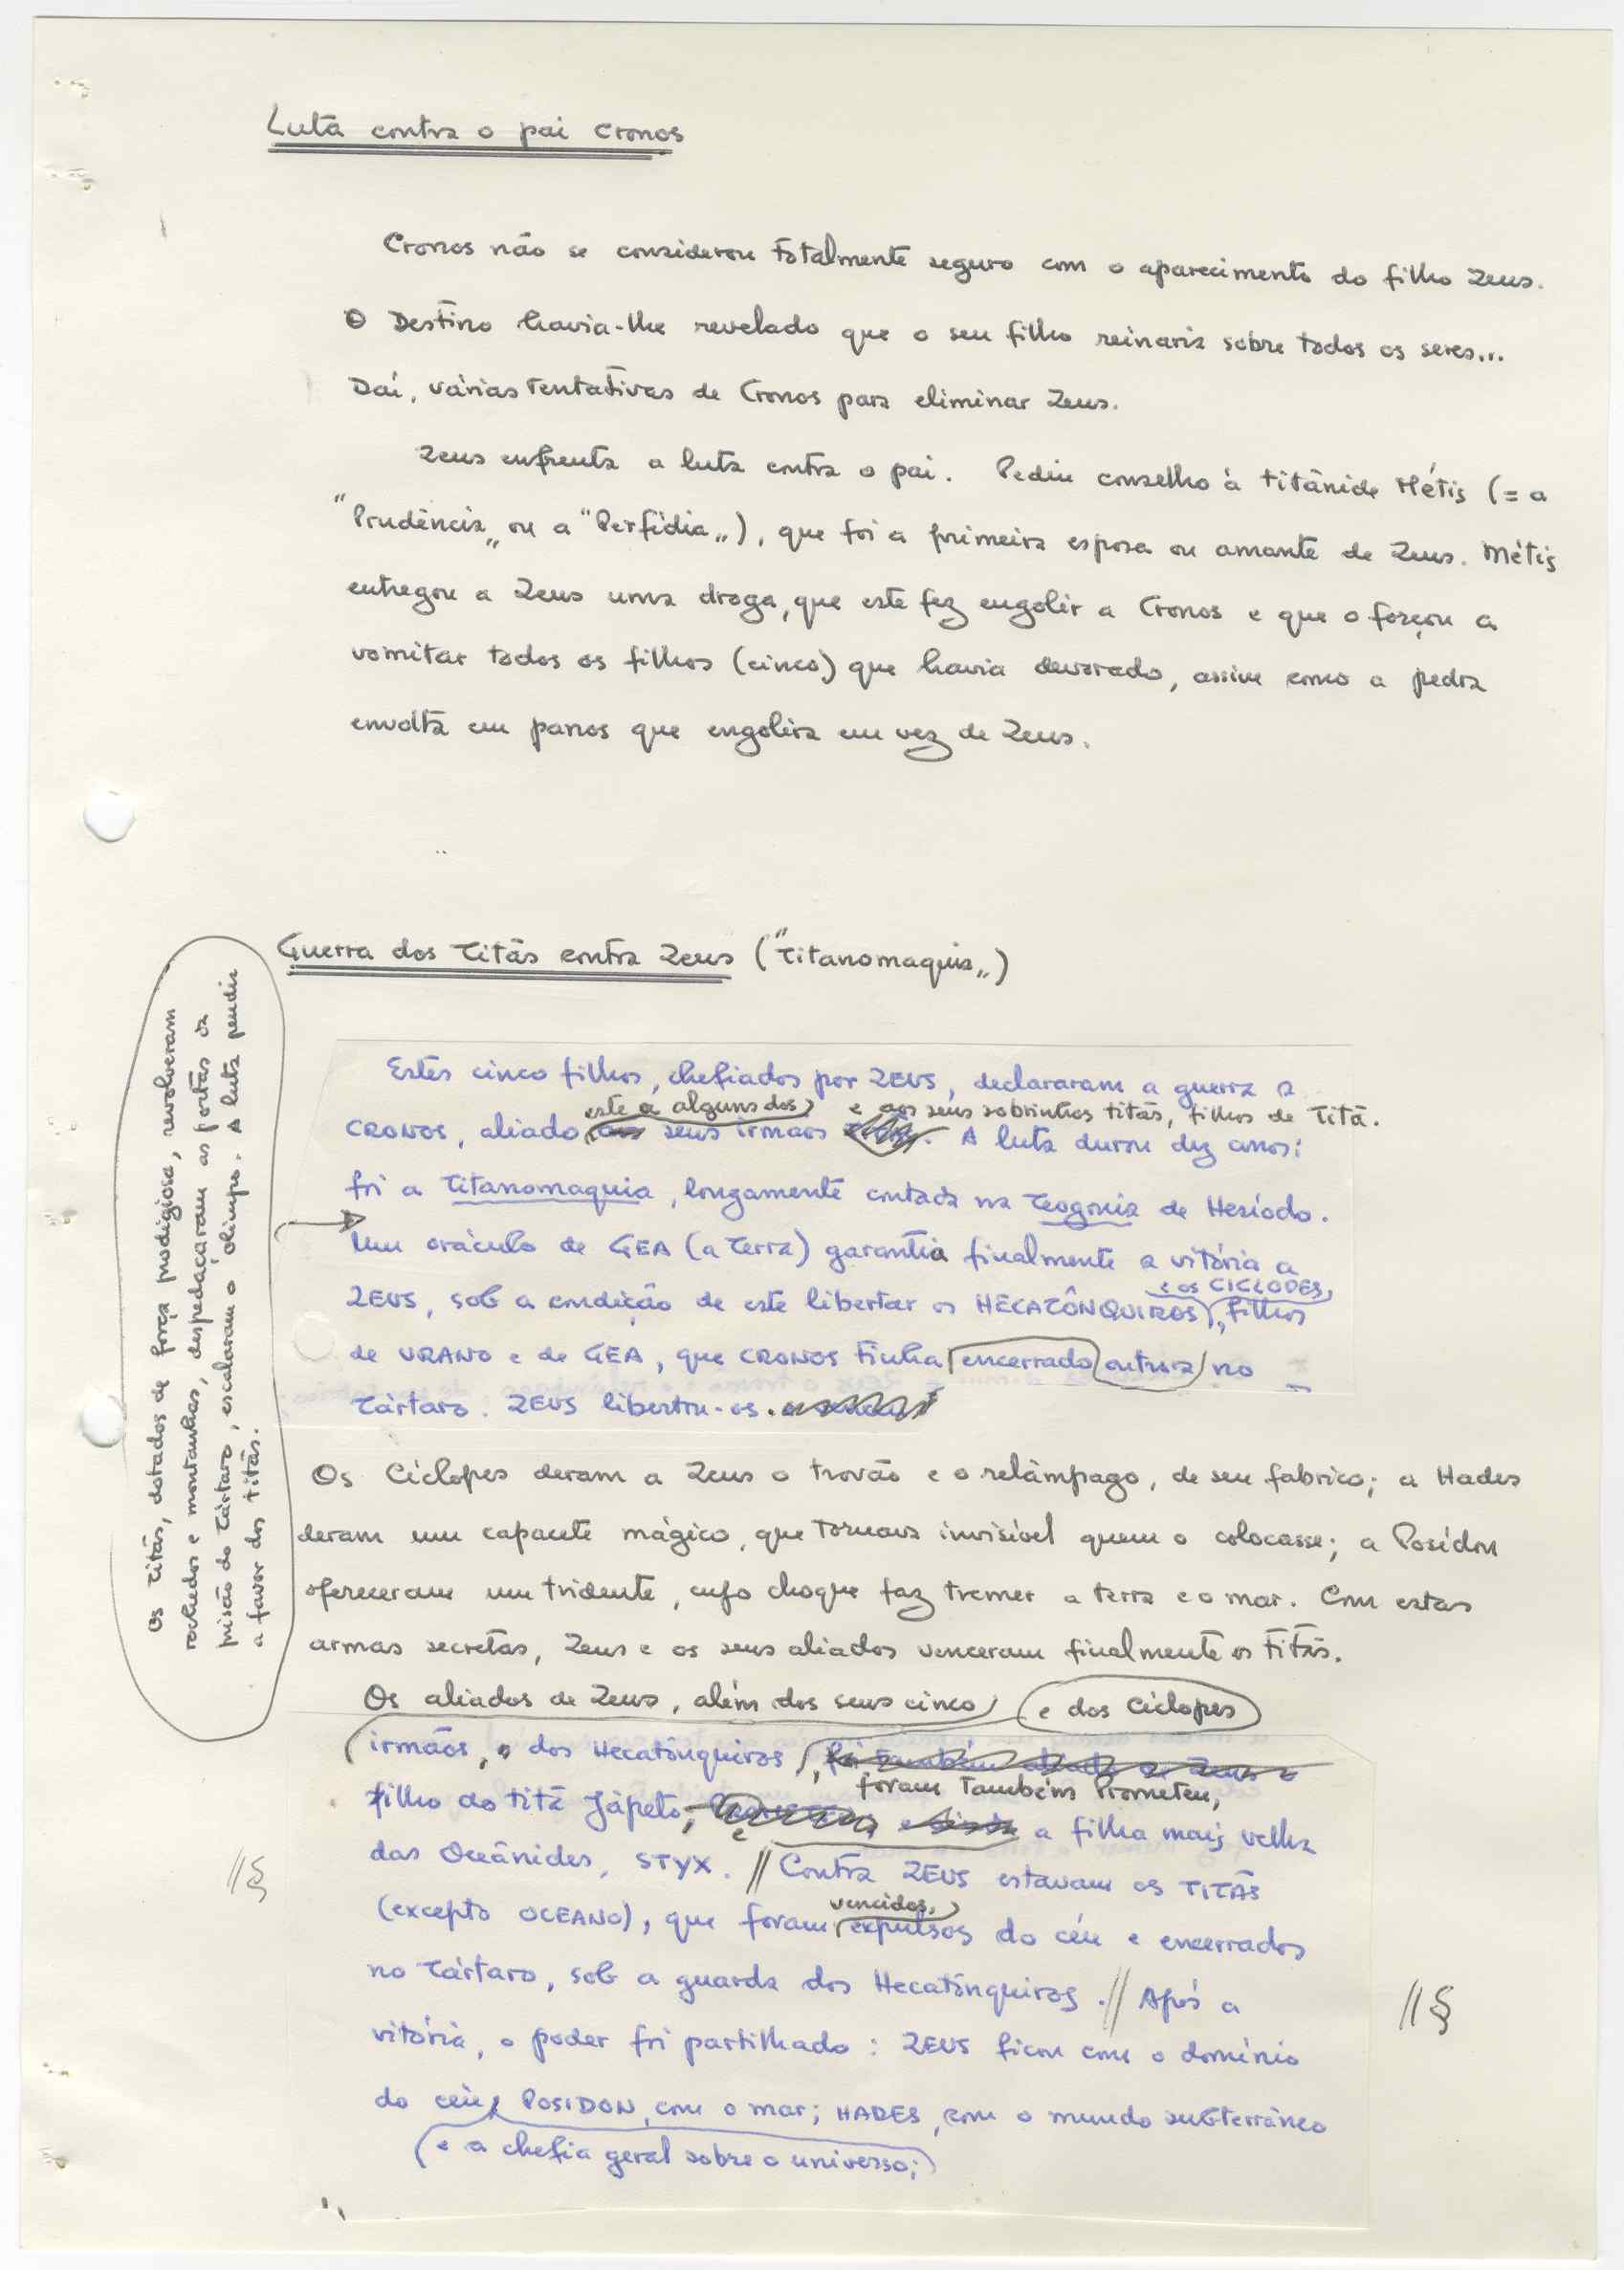 Luta contra o pai Cronos
Cronos não se considerou totalmente seguro com o aparecimento do filho Zeus.
O Destino havia-lhe revelado que o seu filho reinaria sobre todos os seres...
Daí, várias tentativas de Cronos para eliminar Zeus.
Zeus enfrenta a luta contra o pai. Pediu conselho à titânide Métis (= a
"Prudência„ ou a "Perfídia„), que foi a primeira esposa ou amante de Zeus. Métis
entregou a Zeus uma droga, que este fez engolir a Cronos e que o forçou a
vomitar todos os filhos (cinco) que havia devorado, assim como a pedra
envolta em panos que engolira em vez de Zeus.
Guerra dos Titãs contra Zeus ("Titanomaquia„)
Estes cinco filhos, chefiados por ZEUS, declararam a guerra a
este a alguns dos e aos seus sobrinhos titãs, filhos de Titã.
CRONOS, aliado seus irmãos A luta durou dez anos:
foi a Titanomaquia, longamente contada na Teogonia de Hesíodo.
Um oráculo de GEA (a Terra) garantia finalmente a vitória a
e os CICLOPES,
ZEUS, sob a condição de este libertar os HECATÔNQUIROS, filhos
de URANO e de GEA, que CRONOS tinha encerrado outrora no
Tártaro. ZEUS libertou-os.
Os Titãs, dotados de força prodigiosa, revolveram
rochedos e montanhas, despedaçaram as portas da
prisão do Tártaro, escalaram o Olimpo. A luta pendia
a favor dos titãs.
Os Ciclopes deram a Zeus o trovão e o relâmpago, de seu fabrico; a Hades
deram um capacete mágico, que tornava invisível quem o colocasse; a Posídon
ofereceram um tridente, cujo choque faz tremer a terra e o mar. Com estas
armas secretas, Zeus e os seus aliados venceram finalmente os Titãs.
Os aliados de Zeus, além dos seus cinco e dos Ciclopes
irmãos, dos Hecatônquiros,
foram também Prometeu,
filho do titã Jápeto, e a filha mais velha
das Oceânides, STYX. // Contra ZEUS estavam os TITÃS
vencidos,
(excepto OCEANO), que foram expulsos do céu e encerrados
no Tártaro, sob a guarda dos Hecatônquiros. // Após a
vitória, o poder foi partilhado: ZEUS ficou com o domínio
do céu, POSIDON, com o mar; HADES, com o mundo subterrâneo
e a chefia geral sobre o universo;
//§
//§